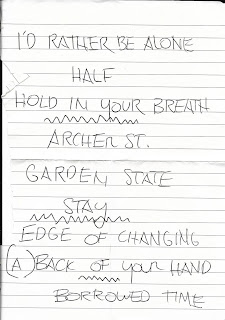 I'D RATHER BE ALONE
HALF
HOLD IN YOUR BREATH
ARCHER ST.
GARDEN STATE
STAY
EDGE OF CHANGING
(A) BACK OF YOUR HAND
BORROWED TIME